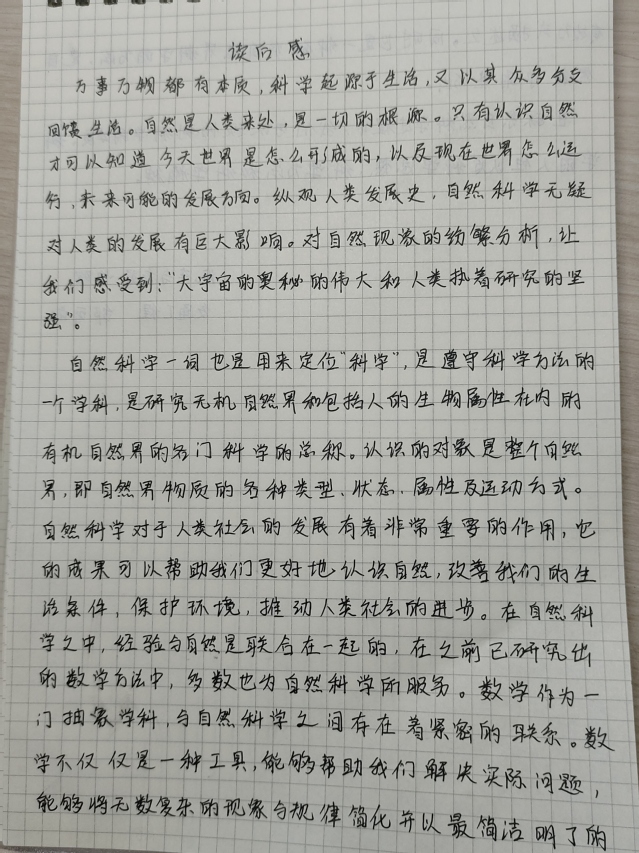 读后感
万事万物都有本质，科学起源于生活，又以其众多分支
回馈生活。自然是人类来处，是一切的根源。只有认识自然
才可以知道今天世界是怎么形成的，以及现在世界怎么运
行，未来可能的发展方向。纵观人类发展史，自然科学无疑
对人类的发展有巨大影响。对自然现象的纷繁分析，让
我们感受到：“大宇宙的奥秘的伟大和人类执着研究的坚
强”。
自然科学一词也是用来定位“科学”，是遵守科学方法的
一个学科，是研究无机自然界和包括人的生物属性在内的
有机自然界的各门科学的总称。认识的对象是整个自然
界，即自然界物质的各种类型、状态、属性及运动方式。
自然科学对于人类社会的发展有着非常重要的作用，它
的成果可以帮助我们更好地认识自然，改善我们的生
活条件，保护环境，推动人类社会的进步。在自然科
学之中，经验与自然是联合在一起的，在之前已研究出
的数学方法中，多数也为自然科学所服务。数学作为一
门抽象学科，与自然科学之间存在着紧密的联系。数
学不仅仅是一种工具，能够帮助我们解决实际问题，
能够将无数复杂的现象与规律简化并以最简洁明了的